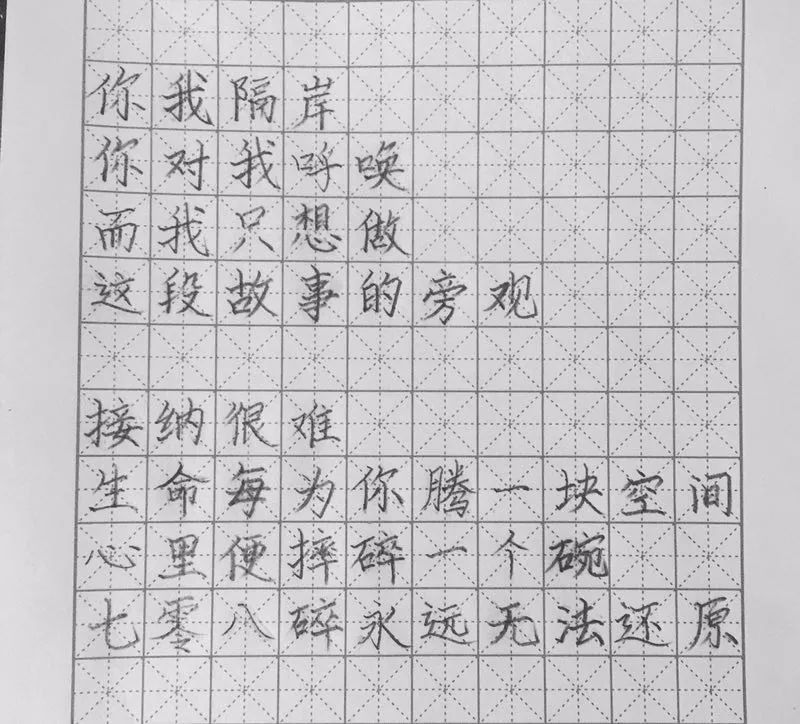 你我隔岸
你对我呼唤
而我只想做
这段故事的旁观
接纳很难
生命每为你腾一块空间
心里便摔碎一个碗
七零八碎永远无法还原